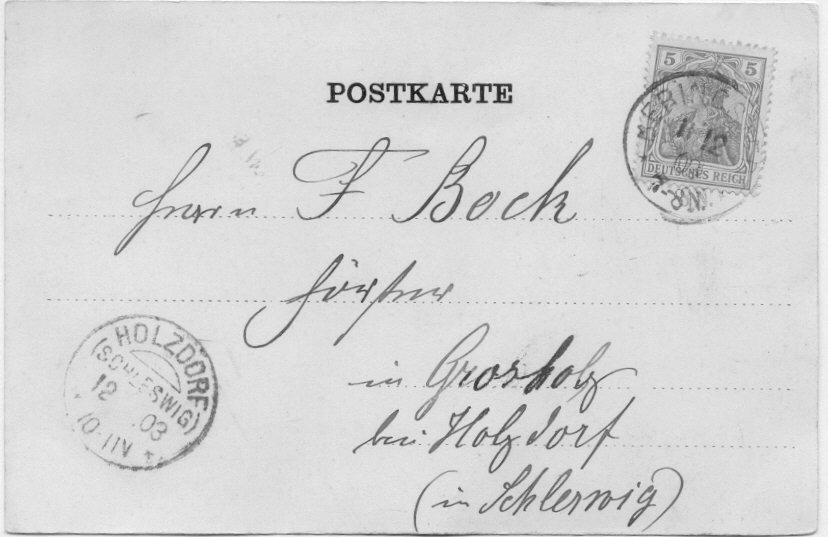 POSTKARTE
5 5
DEUTSCHES REICH
12
7-8N.
Herrn F Bock
Förster
in Grosholz
bei Holzdorf
(in Schleswig)
HOLZDORF
(SCHLESWIG)
12 03
10-11V